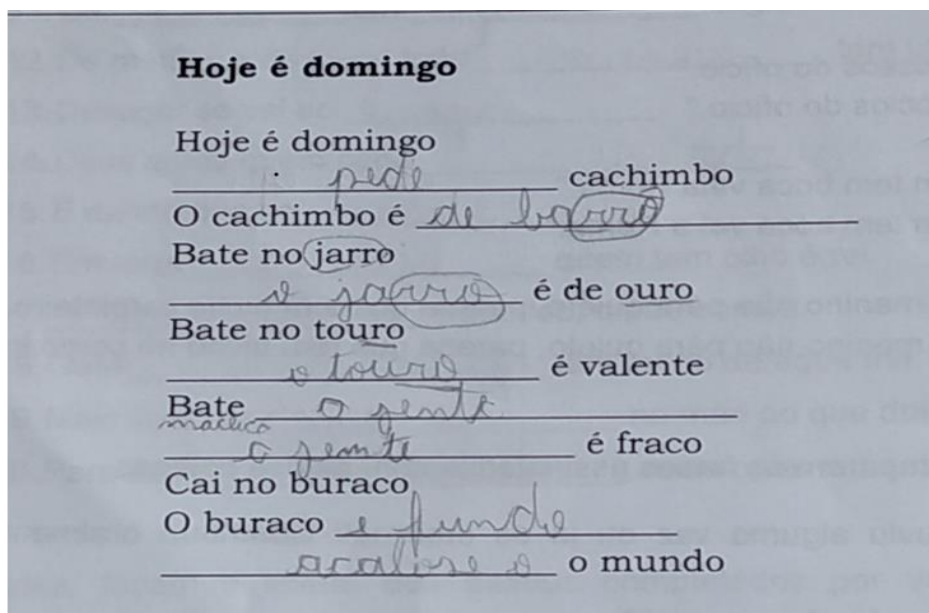 Hoje é domingo
Hoje é domingo
pede cachimbo
O cachimbo é de barro
Bate no jarro
o jarro é de ouro
Bate no touro
o touro é valente
Bate a gente
a gente é fraco
Cai no buraco
O buraco é fundo
o mundo